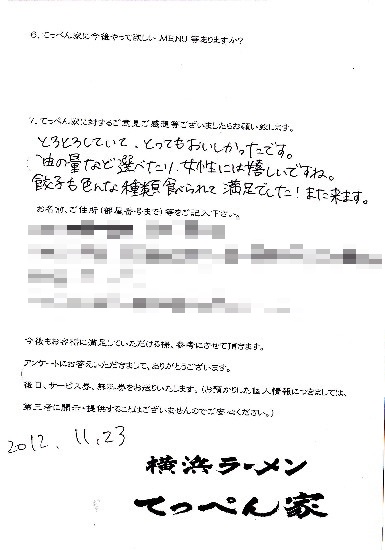 6. てっぺん家に今後やって欲しい MENU 等ありますか?
7. てっぺん家に対するご意見ご感想等ございましたらお願い致します。
とろとろしていて、とってもおいしかったです。
油の量など選べたり、女性には嬉しいですね。
餃子も色んな種類食べられて満足でした!また来ます。
お名前、ご住所(部屋番号まで)等をご記入下さい。
今後もお客様に満足していただける様、参考にさせて頂きます。
アンケートにお答えいただきまして、ありがとうございます。
後日、サービス券、無料券をお送りいたします。(お預かりした個人情報につきましては、
第三者に開示・提供することはございませんのでご安心ください。)
2012. 11.23
横浜ラーメン
てっぺん家